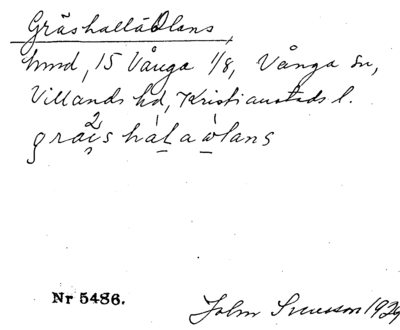 Gräshallåålans,
hmd, 15 Vånga 1/8, Vånga sn,
Villands hd, Kristianstads l.
Nr 5486.
John Svensson 1929